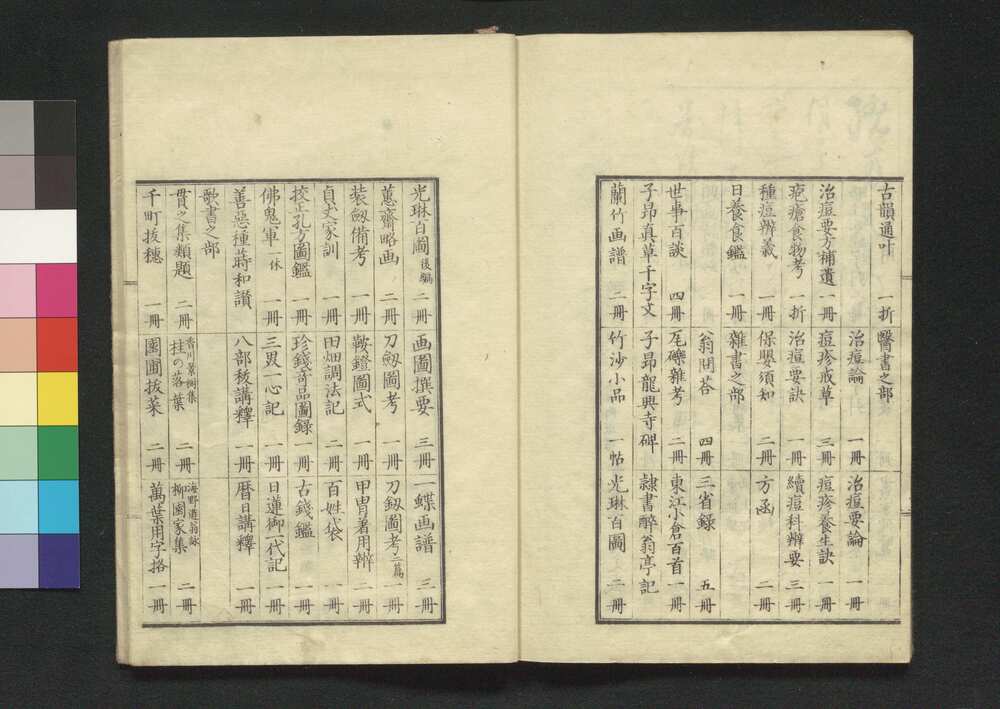 古韻通叶 一折 醫書之部
治痘論 一冊 治痘要論 一冊
治痘要方補遺 一冊 痘疹戒草 三冊 痘疹養生訣 一冊
疱瘡食物考 一折 治痘要訣 一冊 續痘科辨要 三冊
種痘辨義 一冊 保嬰須知 二冊 方函 二冊
日養食鑑 一冊 雜書之部
翁問答 四冊 三省録 五冊
世事百談 四冊 瓦礫雜考 二冊 東江小倉百首 一冊
子昂真草千字文 子昂龍興寺碑 隷書醉翁亭記
蘭竹画譜 二冊 竹沙小品 一帖 光琳百圖 二冊
光琳百圖 後編 二冊 画圖撰要 三冊 一蝶画譜 三冊
蕙齋略画 二冊 刀劔圖考 一冊 刀劔圖考 二篇 一冊
装劔備考 一冊 鞍鐙圖式 一冊 甲冑着用辨 二冊
貞丈家訓 一冊 田畑調法記 二冊 百姓袋 一冊
孔方圖鑑 一冊 珍錢奇品圖録 一冊 古錢鑑 一冊
佛鬼軍 一休 一冊 三畏一心記 一冊 日蓮御一代記 一冊
善惡種蒔和讃 一冊 八部秡講釋 一冊 暦日講釋 一冊
歌書之部
貫之集類題 二冊 香川景樹集 桂の落葉 二冊 海野遊翁詠 柳園家集 二冊
千町抜穗 一冊 園圃抜菜 二冊 萬葉用字格 一冊